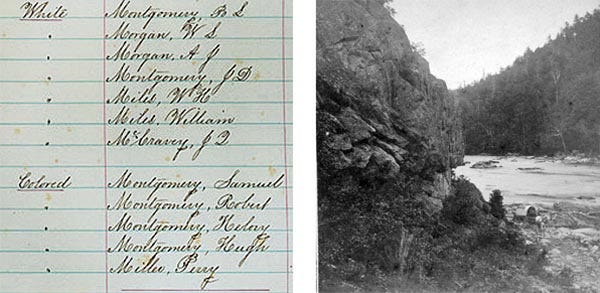 White Montgomery, B L
" Morgan, W S
" Morgan, A J
" Montgomery, J. D
" Miles, W H
" Miles, William
" McCravey, J Q
Colored Montgomery, Samuel
" Montgomery, Robert
" Montgomery, Hilory
" Montgomery, Hugh
" Miller, Perry